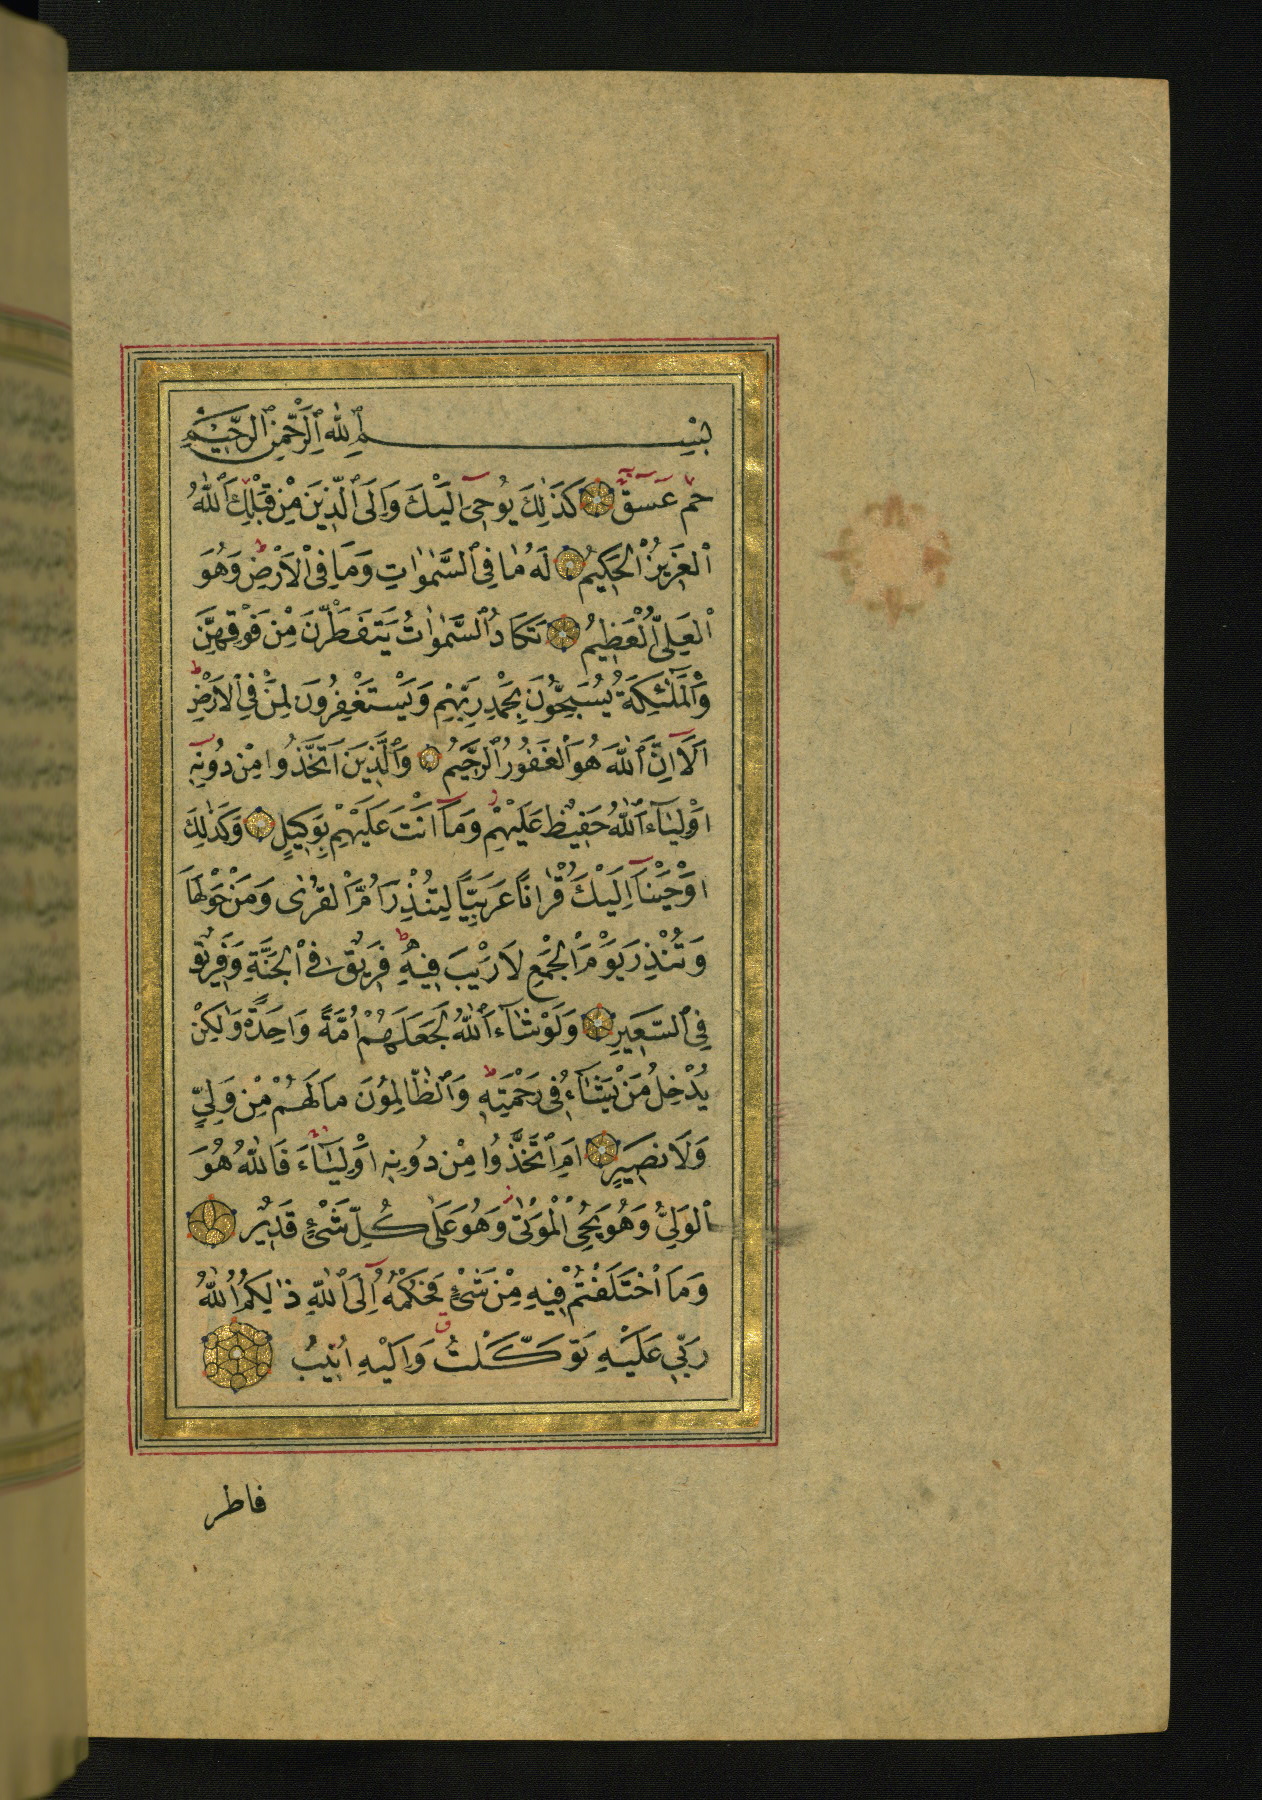 بِسْمِ ٱللّٰهِ ٱلرَّحْمٰنِ ٱلرَّحِيمِ
حٰمٓ عٓسٓقٓ كَذٰلِكَ يُوحِىٓ اِلَيْكَ وَاِلَى ٱلَّذِينَ مِنْ قَبْلِكَ ٱللّٰهُ
ٱلْعَزِيزُ ٱلْحَكِيمُ لَهُ مَا فِى ٱلسَّمٰوٰاتِ وَمَا فِى ٱلْاَرْضِ وَهُوَ
ٱلْعَلِىُّ ٱلْعَظِيمُ تَكَادُ ٱلسَّمٰوٰاتُ يَتَفَطَّرْنَ مِنْ فَوْقِهِنَّ
وَٱلْمَلٰٓئِكَةُ يُسَبِّحُونَ بِحَمْدِ رَبِّهِمْ وَيَسْتَغْفِرُونَ لِمَنْ فِى ٱلْاَرْضِ
اَلَآ اِنَّ ٱللّٰهَ هُوَ ٱلْغَفُورُ ٱلرَّحِيمُ وَٱلَّذِينَ ٱتَّخَذُوا مِنْ دُونِهِٓ
اَوْلِيَآءَ ٱللّٰهُ حَفِيظٌ عَلَيْهِمْ وَمَآ اَنْتَ عَلَيْهِمْ بِوَكِيلٍ وَكَذٰلِكَ
اَوْحَيْنَآ اِلَيْكَ قُرْاٰنًا عَرَبِيًّا لِتُنْذِرَ اُمَّ ٱلْقُرٰى وَمَنْ حَوْلَهَا
وَتُنْذِرَ يَوْمَ ٱلْجَمْعِ لَا رَيْبَ فِيهِ فَرِيقٌ فِى ٱلْجَنَّةِ وَفَرِيقٌ
فِى ٱلسَّعِيرِ وَلَوْ شَآءَ ٱللّٰهُ لَجَعَلَهُمْ اُمَّةً وَاحِدَةً وَلٰكِنْ
يُدْخِلُ مَنْ يَشَآءُ فِى رَحْمَتِهِ وَٱلظَّالِمُونَ مَا لَهُمْ مِنْ وَلِىٍّ
وَلَا نَصِيرٍ اَمِ ٱتَّخَذُوا مِنْ دُونِهِ اَوْلِيَآءَ فَٱللّٰهُ هُوَ
ٱلْوَلِىُّ وَهُوَ يُحْىِ ٱلْمَوْتٰى وَهُوَ عَلٰى كُلِّ شَىْءٍ قَدِيرٌ
وَمَا ٱخْتَلَفْتُمْ فِيهِ مِنْ شَىْءٍ فَحُكْمُهُٓ اِلَى ٱللّٰهِ ذٰلِكُمُ ٱللّٰهُ
رَبِّى عَلَيْهِ تَوَكَّلْتُ وَاِلَيْهِ اُنِيبُ
فاطر